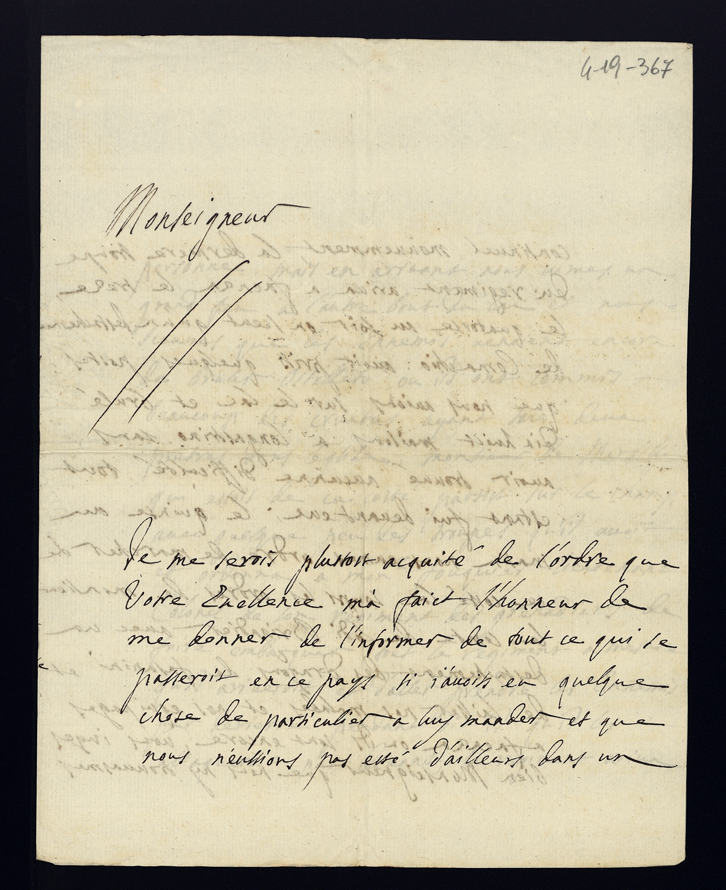 4-19-367
Monseigneur
Je me serois plustost acquité de l'ordre que
Votre Excellence m'a faict l'honneur de
me donner de l'informer de tout ce qui se
passeroit en ce pays si j'avois eu quelque
chose de particulier a luy mander et que
nous n'eussions pas esté d'ailleurs dans un